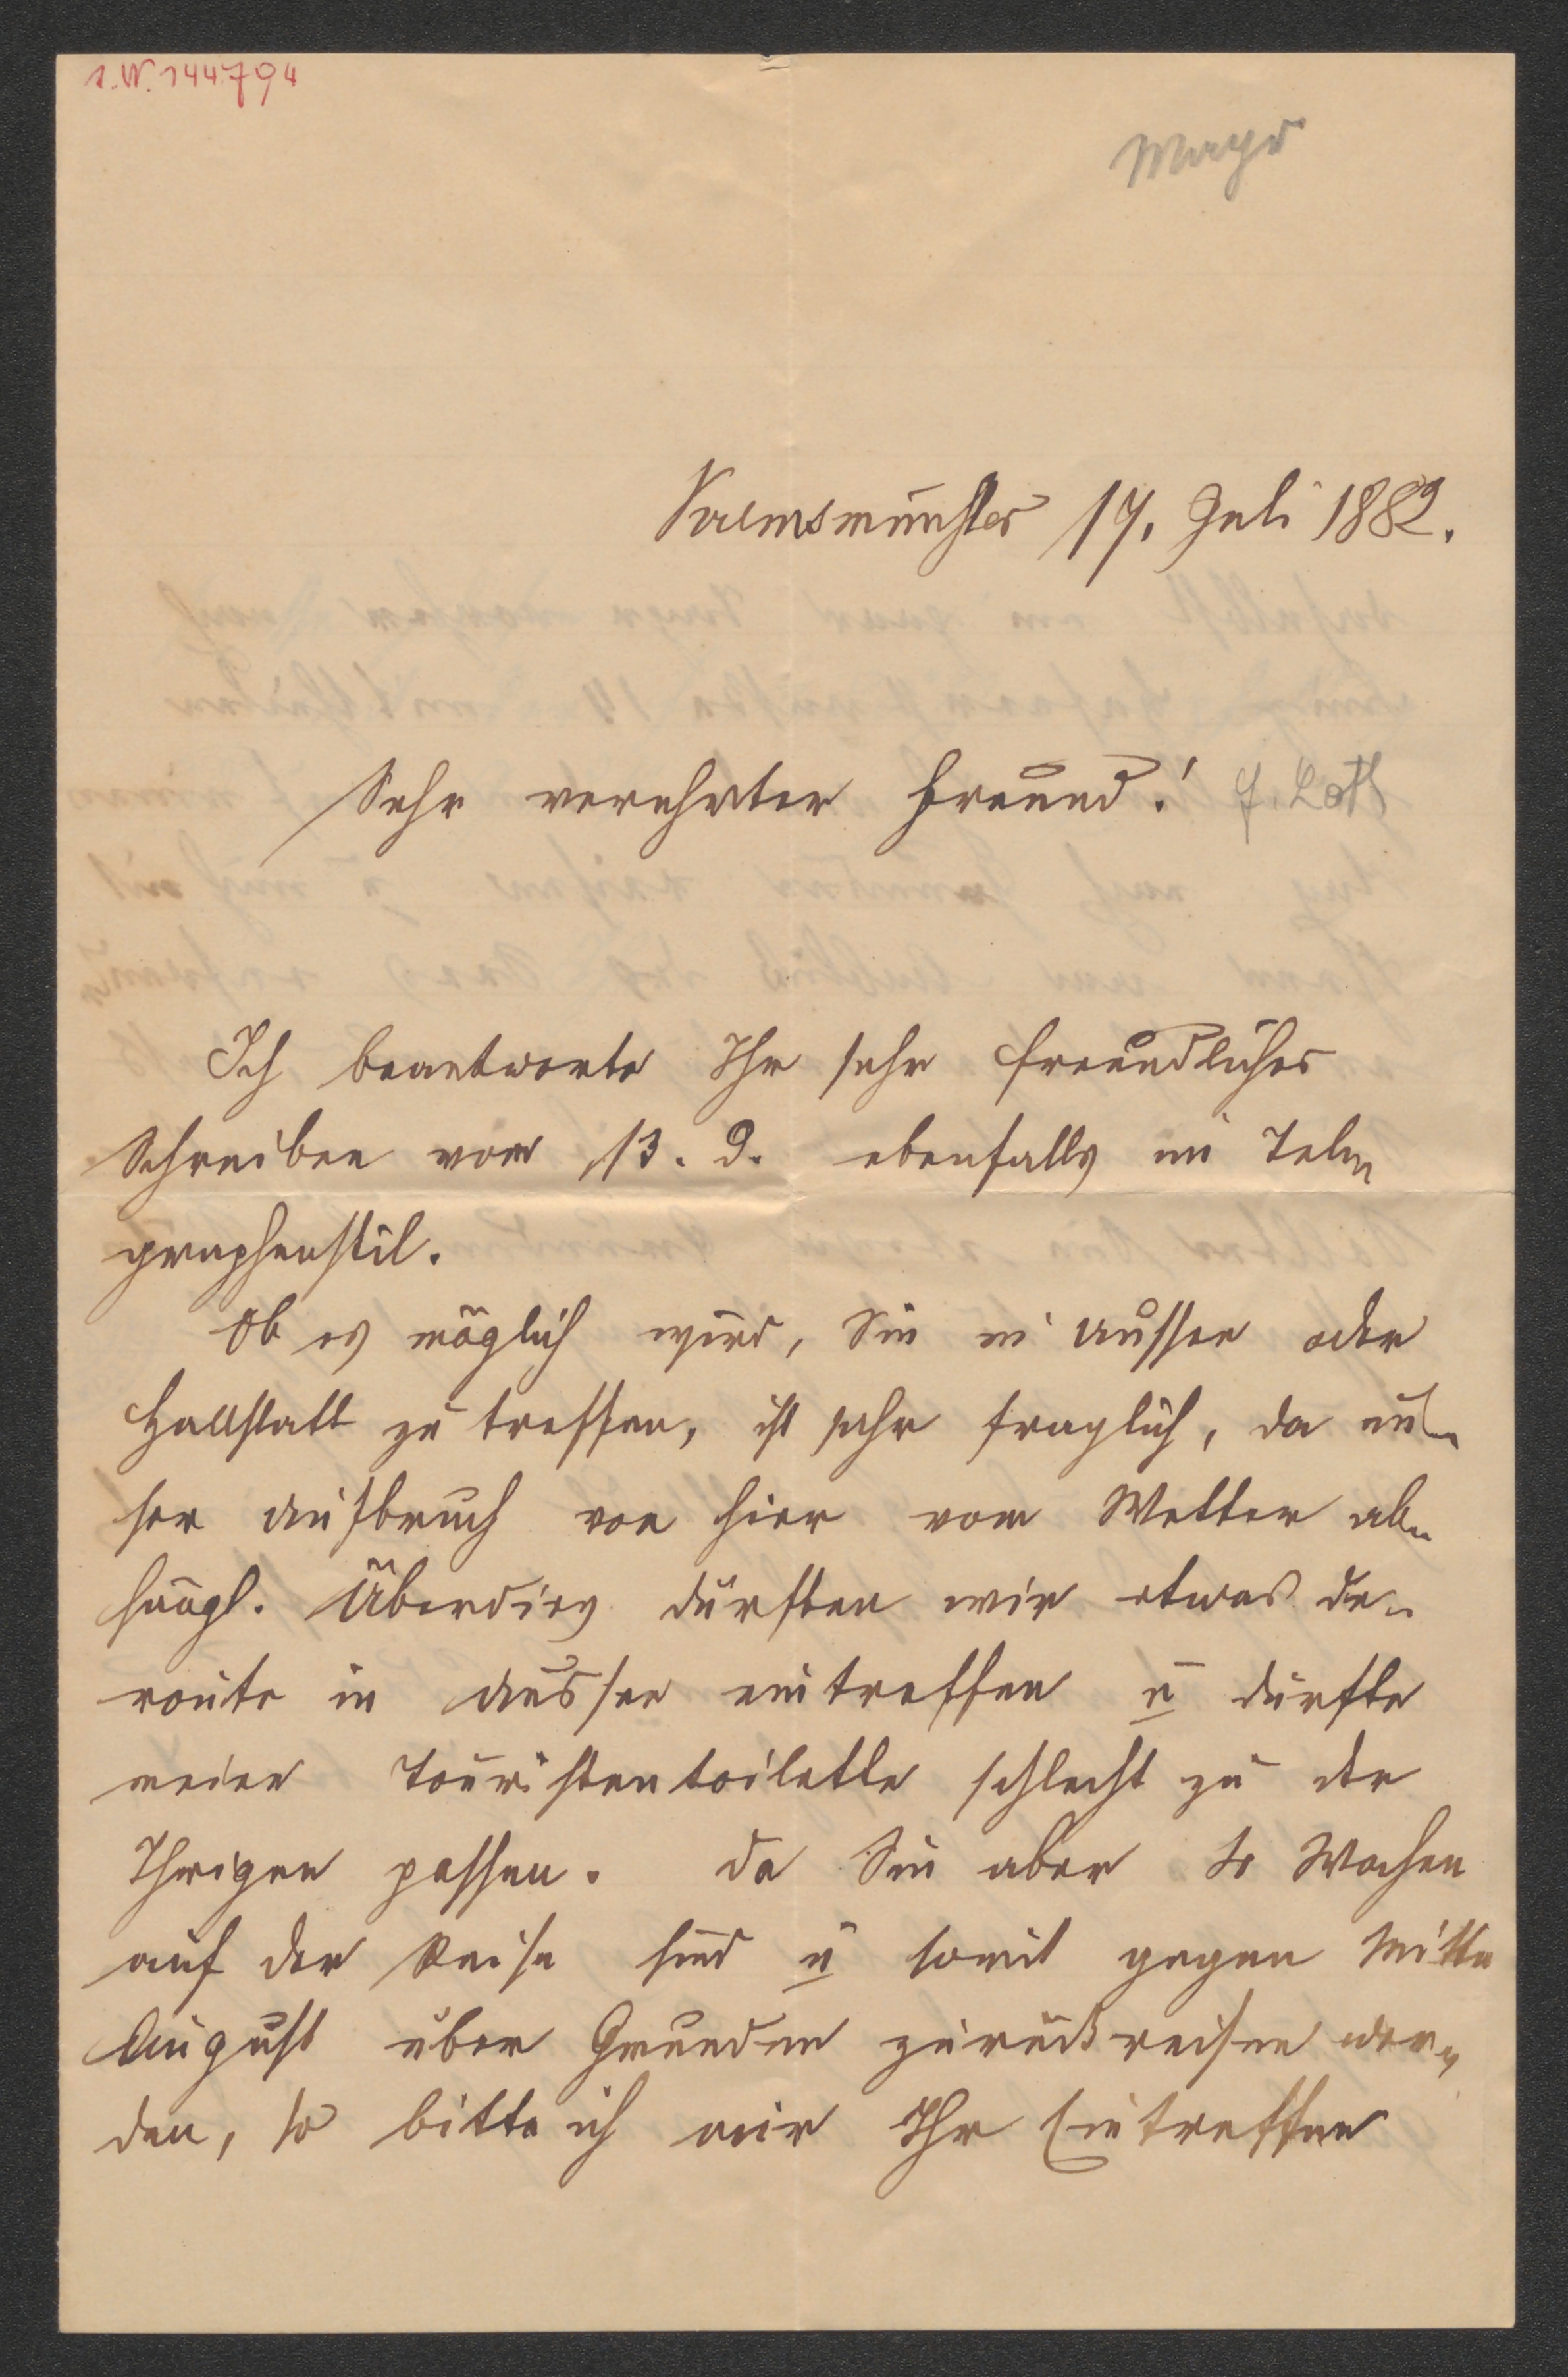 I.N. 144794
Mayr
Kremsmünster 17. Juli 1882.
Sehr verehrter Freund!
Ich beantworte Ihr sehr freundliches
Schreiben vom 13. d. ebenfalls im Tele-
graphenstil.
Ob es möglich wird, Sie in Aussee oder
Hallstatt zu treffen, ist sehr fraglich, da un-
ser Aufbruch von hier vom Wetter ab-
hängt. Überdies dürften wir etwas de-
route in Aussee eintreffen u dürfte
meine Touristentoilette schlecht zu der
Ihrigen passen. Da Sie aber Wochen
auf der Reise sind u somit gegen Mitte
August über Gmunden zurückreisen wer-
den, so bitte ich mir Ihr Eintreffen